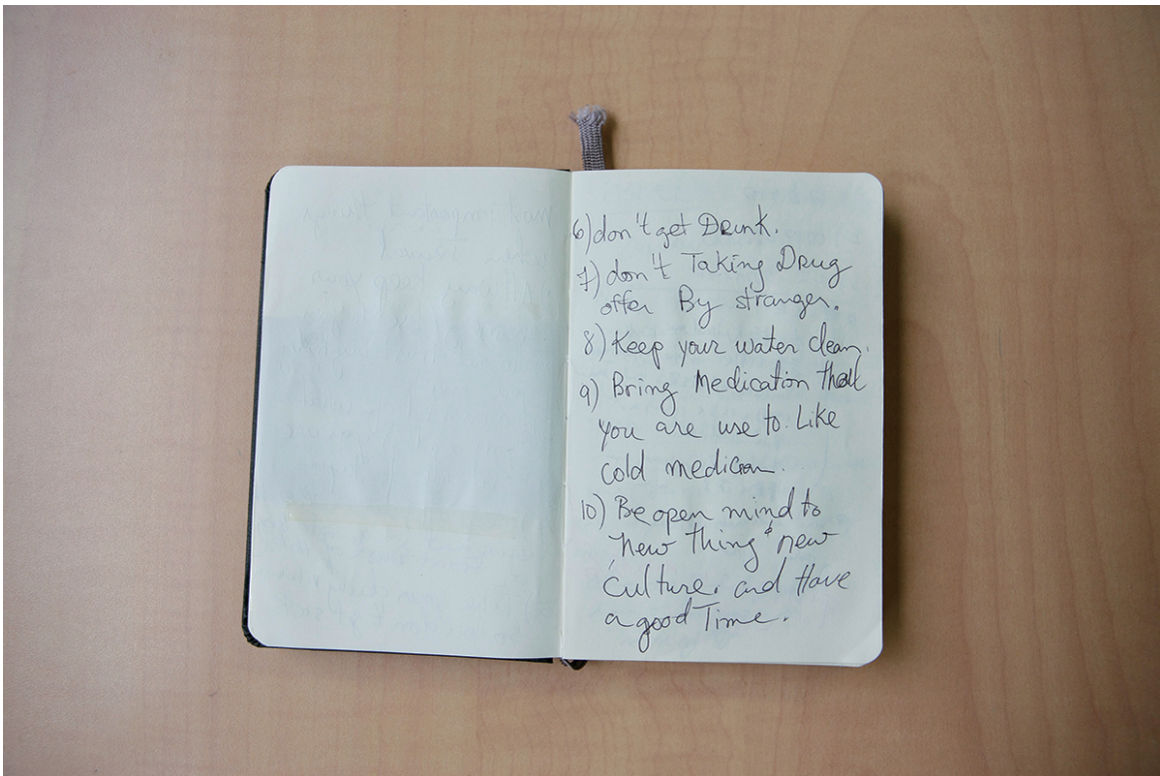 6) don't get Drunk.
7) don't Taking Drug
offer By stranger.
8) Keep your water clean.
9) Bring Medication that
you are use to. Like
cold
10) Be open mind to
new thing & new
culture. and Have
a good Time.